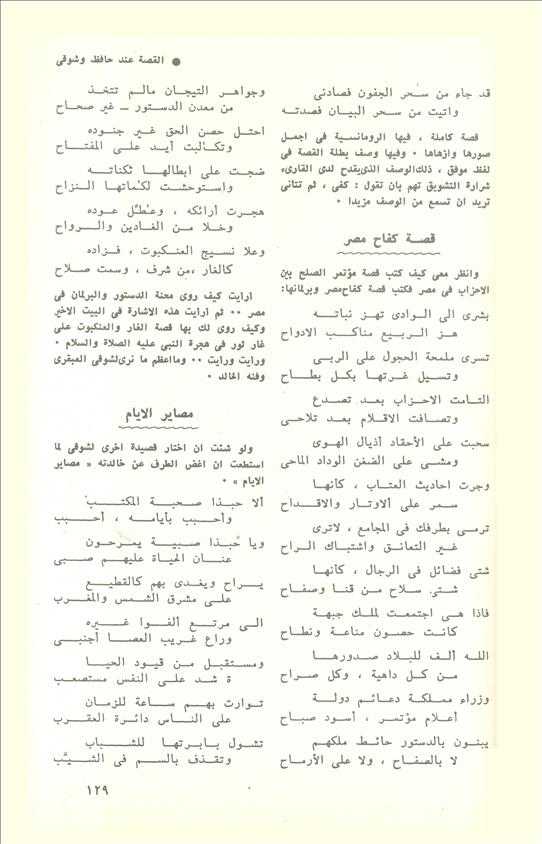 ● القصة عند حافظ وشوقي
قد جاء من سحر الجفون فصادنى
واتيت من سحر البيان فصدته
قصة كاملة ، فيها الرومانسية في اجمل
صورها وازهاها . وفيها وصف بطلة القصة في
لفظ موفق ، ذلك الوصف الذى يقدح لدى القارىء
شرارة التشويق تهم بان تقول : كفى ، ثم تتانى
تريد ان تسمع من الوصف مزيدا .
قصة كفاح مصر
وانظر معى كيف كتب قصة مؤتمر الصلح بين
الاحزاب في مصر فكتب قصة كفاح مصر وبرلمانها:
بشرى الى الوادى تهز نباته
هز الربيع مناكب الادواح
تسرى ملمحة الحجول على الربى
وتسيل غرتها بكل بطاح
التامت الاحزاب بعد تصدع
وتصافت الاقلام بعد تلاحى
سحبت على الأحقاد أذيال الهوى
ومشى على الضغن الوداد الماحى
وجرت احاديث العتاب ، كأنها
سمر على الأوتار والاقداح
ترمى بطرفك في المجامع ، لاترى
غير التعانق واشتباك الراح
شتى فضائل في الرجال ، كأنها
شتى سلاح من قنا وصفاح
فاذا هى اجتمعت لملك جبهة
كانت حصون مناعة ونطاح
الله ألف للبلاد صدورها
من كل داهية ، وكل صراح
وزراء مملكة دعائم دولة
أعلام مؤتمر ، أسود صباح
يبنون بالدستور حائط ملكهم
لا بالصفاح ، ولا على الأرماح
وجواهر التيجان مالم تتخذ
من معدن الدستور – غير صحاح
احتل حصن الحق غير جنوده
وتكالبت أيد على المفتاح
ضجت على ابطالها ثكناته
واستوحشت لكماتها النزاح
هجرت أرائكه ، وعطل عوده
وخلا من الغادين والرواح
وعلا نسيج العنكبوت ، فزاده
كالغار ،من شرف ، وسمت صلاح
ارايت كيف روى محنة الدستور والبرلمان في
مصر .. ثم ارايت هذه الاشارة في البيت الاخير
وكيف روى لك بها قصة الغار والعنكبوت على
غار ثور في هجرة النبي عليه الصلاة والسلام .
ورايت ورايت .. وما اعظم ما نرى لشوقى العبقرى
وفنه الخالد .
مصاير الايام
ولو شئت ان اختار قصيدة اخرى لشوقى لما
استطعت ان اغض الطرف عن خالدته « مصاير
الايام » .
ألا حبذا صحبة المكتب
وأحبب بأيامه ، أحبب
ويا حبذا صبية يمرحون
عنان الحياة عليهم صبى
يراح ويغدى بهم كالقطيع
على مشرق الشمس والمغرب
الى مرتع ألفوا غيره
وراع غريب العصا أجنبى
ومستقبل من قيود الحيا
ة شد على النفس مستصعب
توارت بهم ساعة للزمان
على الناس دائرة العقرب
تشول بابرتها للشباب
وتقذف بالسم في الشيب
١٢٩